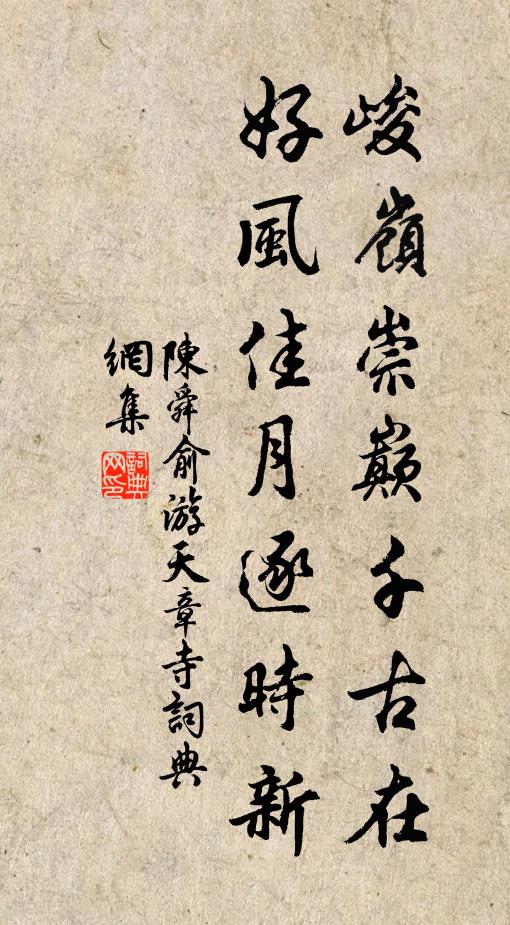 峻嶺崇巔千古在
好風佳月逐時新
陳舜俞游天章寺詞典
網集
詞典網印